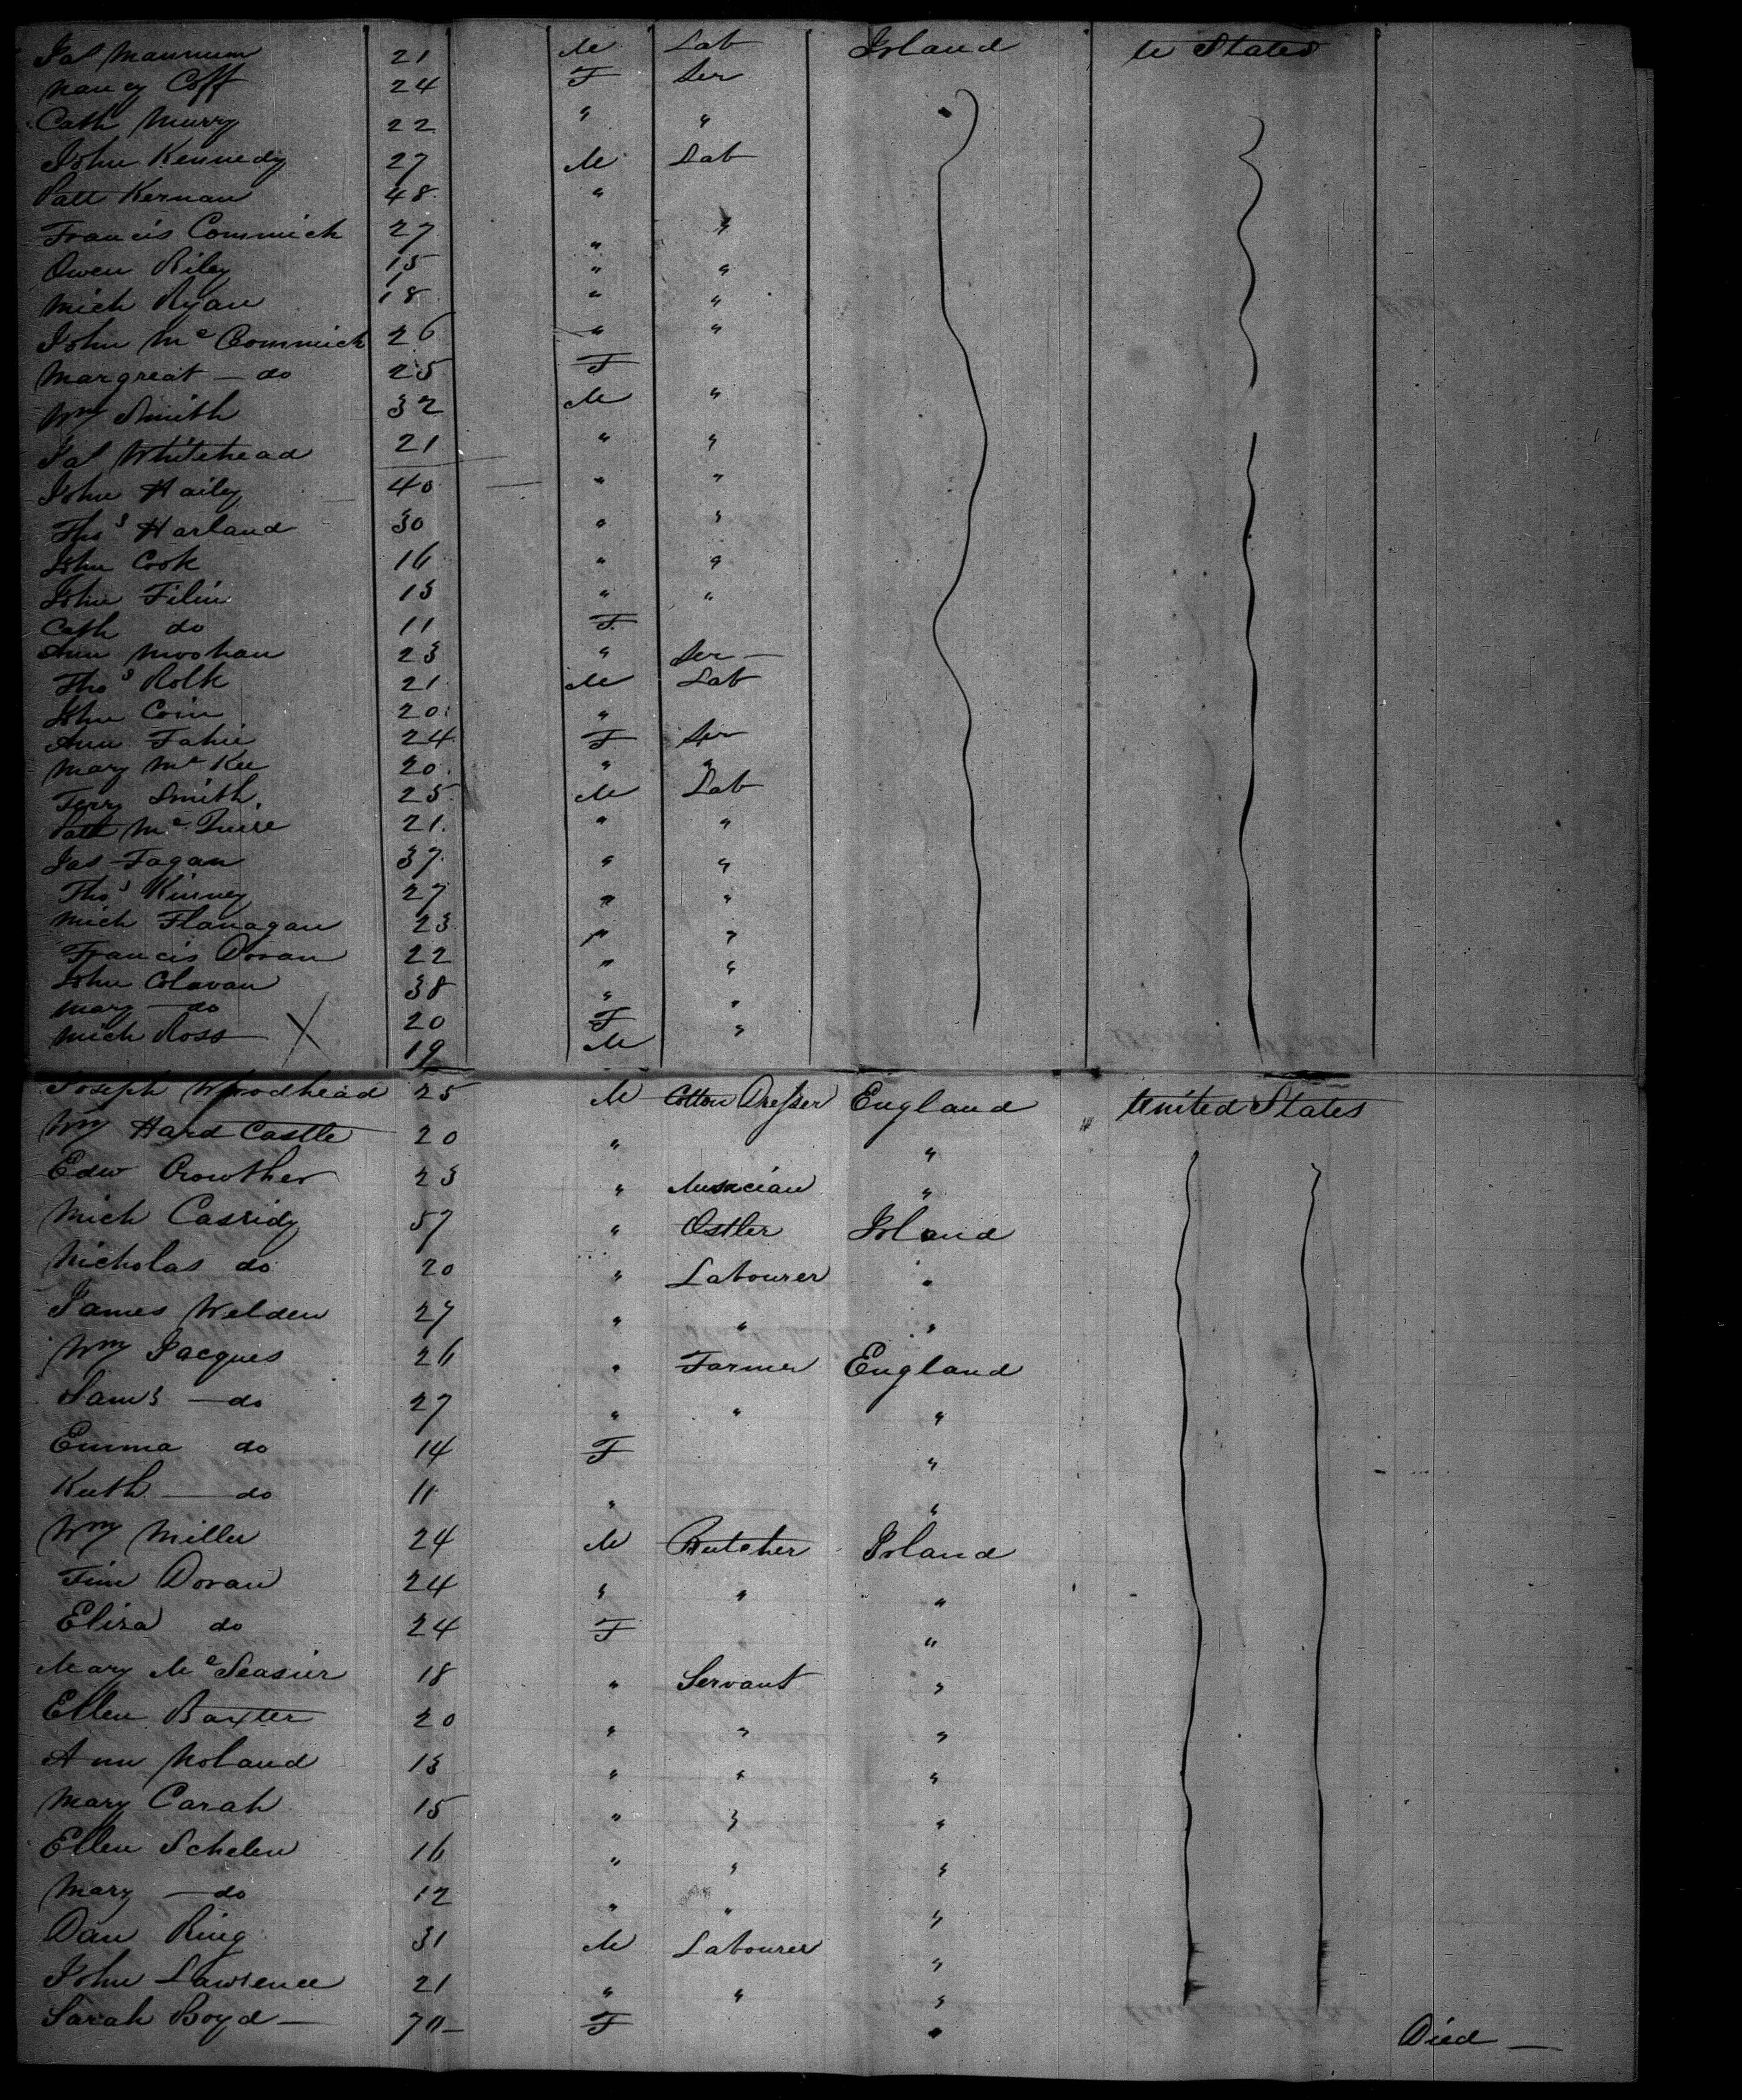 Jas Mannum 21 M Lab Irland U States
Nancy Coff 24 F Ser
Cath Murry 22 " "
John Kennedy 27 M Lab
Patt Kernan 48 "
Francis Commick 27 " "
Owen Riley 15 " "
Mich Ryan 18 " "
John Mc Commick 26 " "
Margreat - do 25 F
Wm Smith 32 M "
Jas Whitehead 21 " "
John Haily 40 " "
Thos Harland 30 " "
John Cook 16 " "
John Filin 13 " "
Cath do 11 F
Ann Moohan 23 " Ser -
Thos Rolk 21 M Lab
John Coin 20 "
Ann Fahie 24 F Ser
Mary Mc Kee 20 " "
Terry Smith 25 M Lab
Patt Mc 21 " "
Jas Fagan 37 " "
Thos Kinney 27 " "
Mich Flanagan 23 " "
Francis Doran 22 " "
John Colavan 38 " "
Mary - do 20 F "
Mich Ross X 19 M
Joseph Woodhead 25 M Cotton Dresser England United States
Wm Hard Castle 20 " "
Edw Crowther 23 " Musician "
Mich Cassidy 57 " Ostler Irland
Nicholas do 20 " Labourer "
James Welden 27 " " "
Wm Jacques 26 " Farmer England
Saml - do 27 " " "
Emma do 14 F "
Ruth - do 11 " "
Wm Miller 24 M Butcher Irland
Tim Doran 24 " " "
Eliza do 24 F "
Mary Mc 18 " Servant "
Ellen Baxter 20 " " "
Ann Noland 13 " " "
Mary Carah 15 " " "
Ellen Schelen 16 " " "
Mary - do 12 " " "
Dan Ring 31 M Labourer "
John Lawrence 21 " " "
Sarah Boyd - 70 - F " Died -